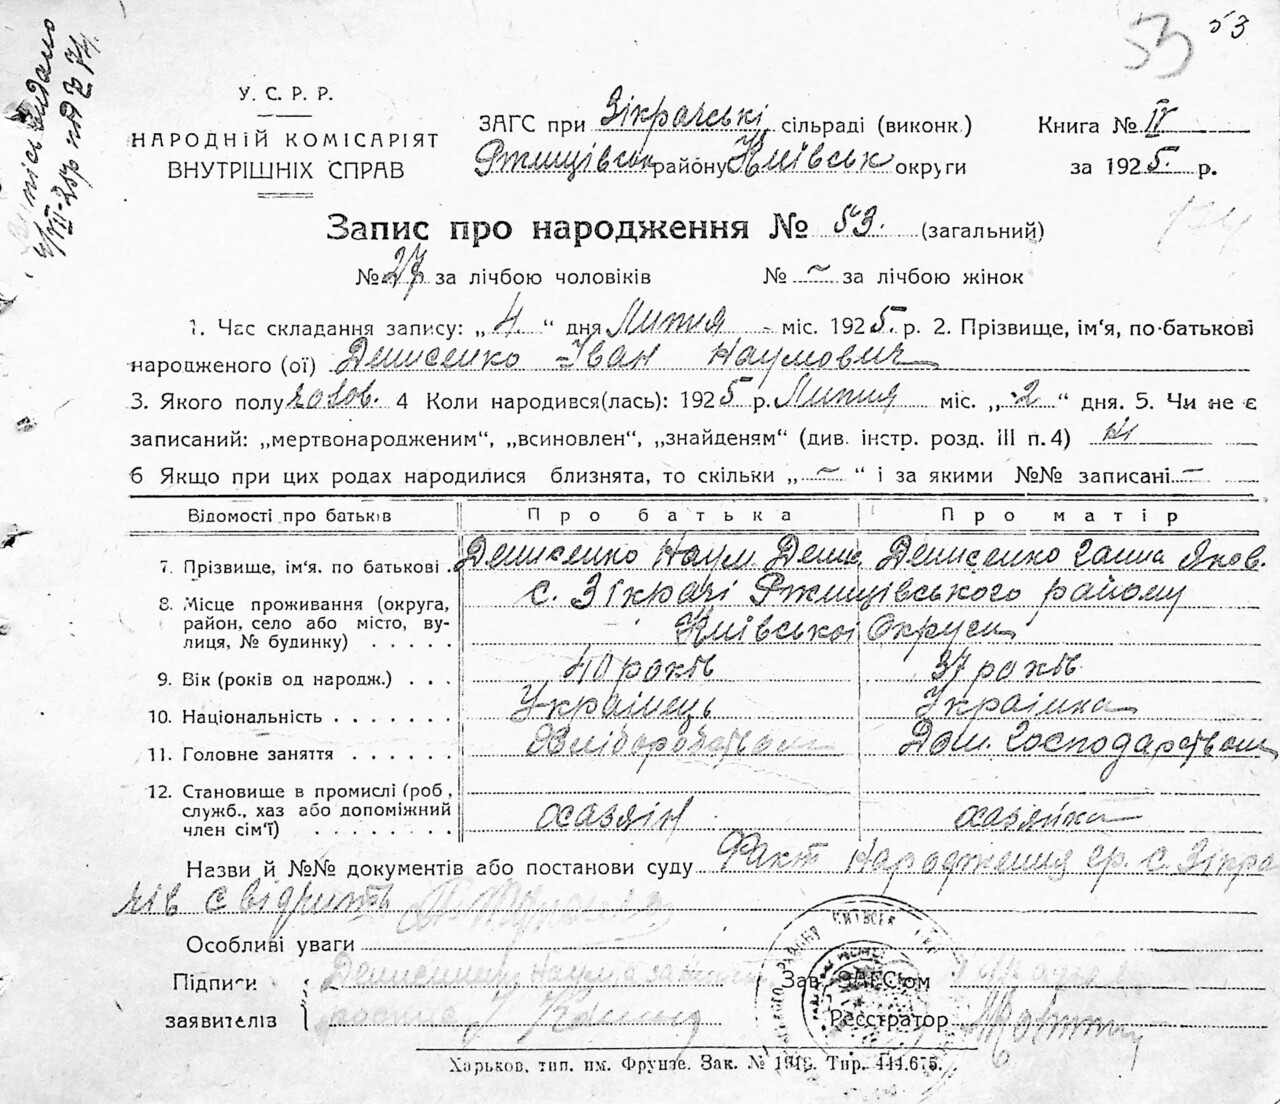 53
53
У. С. Р. Р.
НАРОДНІЙ КОМІСАРІЯТ
ВНУТРІШНІХ СПРАВ
ЗАГС при Зікрачські сільраді (виконк.)
Ржищівськ району Київськ округи
Книга № II
за 1925. р.
174
Запис про народження № 53. (загальний)
№ 27 за лічбою чоловіків № – за лічбою жінок
1. Час складання запису: „4.“ дня Липня міс. 1925. р. 2. Прізвище, ім‘я, по-батькові
народженого (ої) Денисенко Іван Наумович
3. Якого полу чолов. 4 Коли народився(лась): 1925 р. Липня міс. „2“ дня. 5. Чи не є
записаний: „мертвонародженим“, „всиновлен“, „знайденям“ (див. інстр. розд. III п. 4) Ні
6 Якщо при цих родах народилися близнята, то скільки „–“ і за якими №№ записані –
Відомості про батьків Про батька Про матір
7. Прізвище, ім‘я. по батькові . Денисенко Наум Денис. Денисенко Ганна Яков.
8. Місце проживання (округа, с. Зікрачі Ржищівського району
район, село або місто, ву- Київської Округи
лиця, № будинку) . . . . .
9. Вік (років од народж.) . . . 40 років 37 років
10. Національність . . . . . . . Українець Українка
11. Головне заняття . . . . . . Хліборобством Дом. Господарством
12. Становище в промислі (роб.,
служб., хаз або допоміжний хазяін хазяйка
член сім‘ї) . . . . . . . .
Назви й №№ документів або постанови суду Факт Народження гр. с. Зікра
чів свідчить
Особливі уваги
Підписи Денисенко Наум, а за Зав. ЗАГС‘ом
заявителів Реєстратор
Харьков, тип. им. Фрунзе. Зак. № 1918. Тир. 444.675.